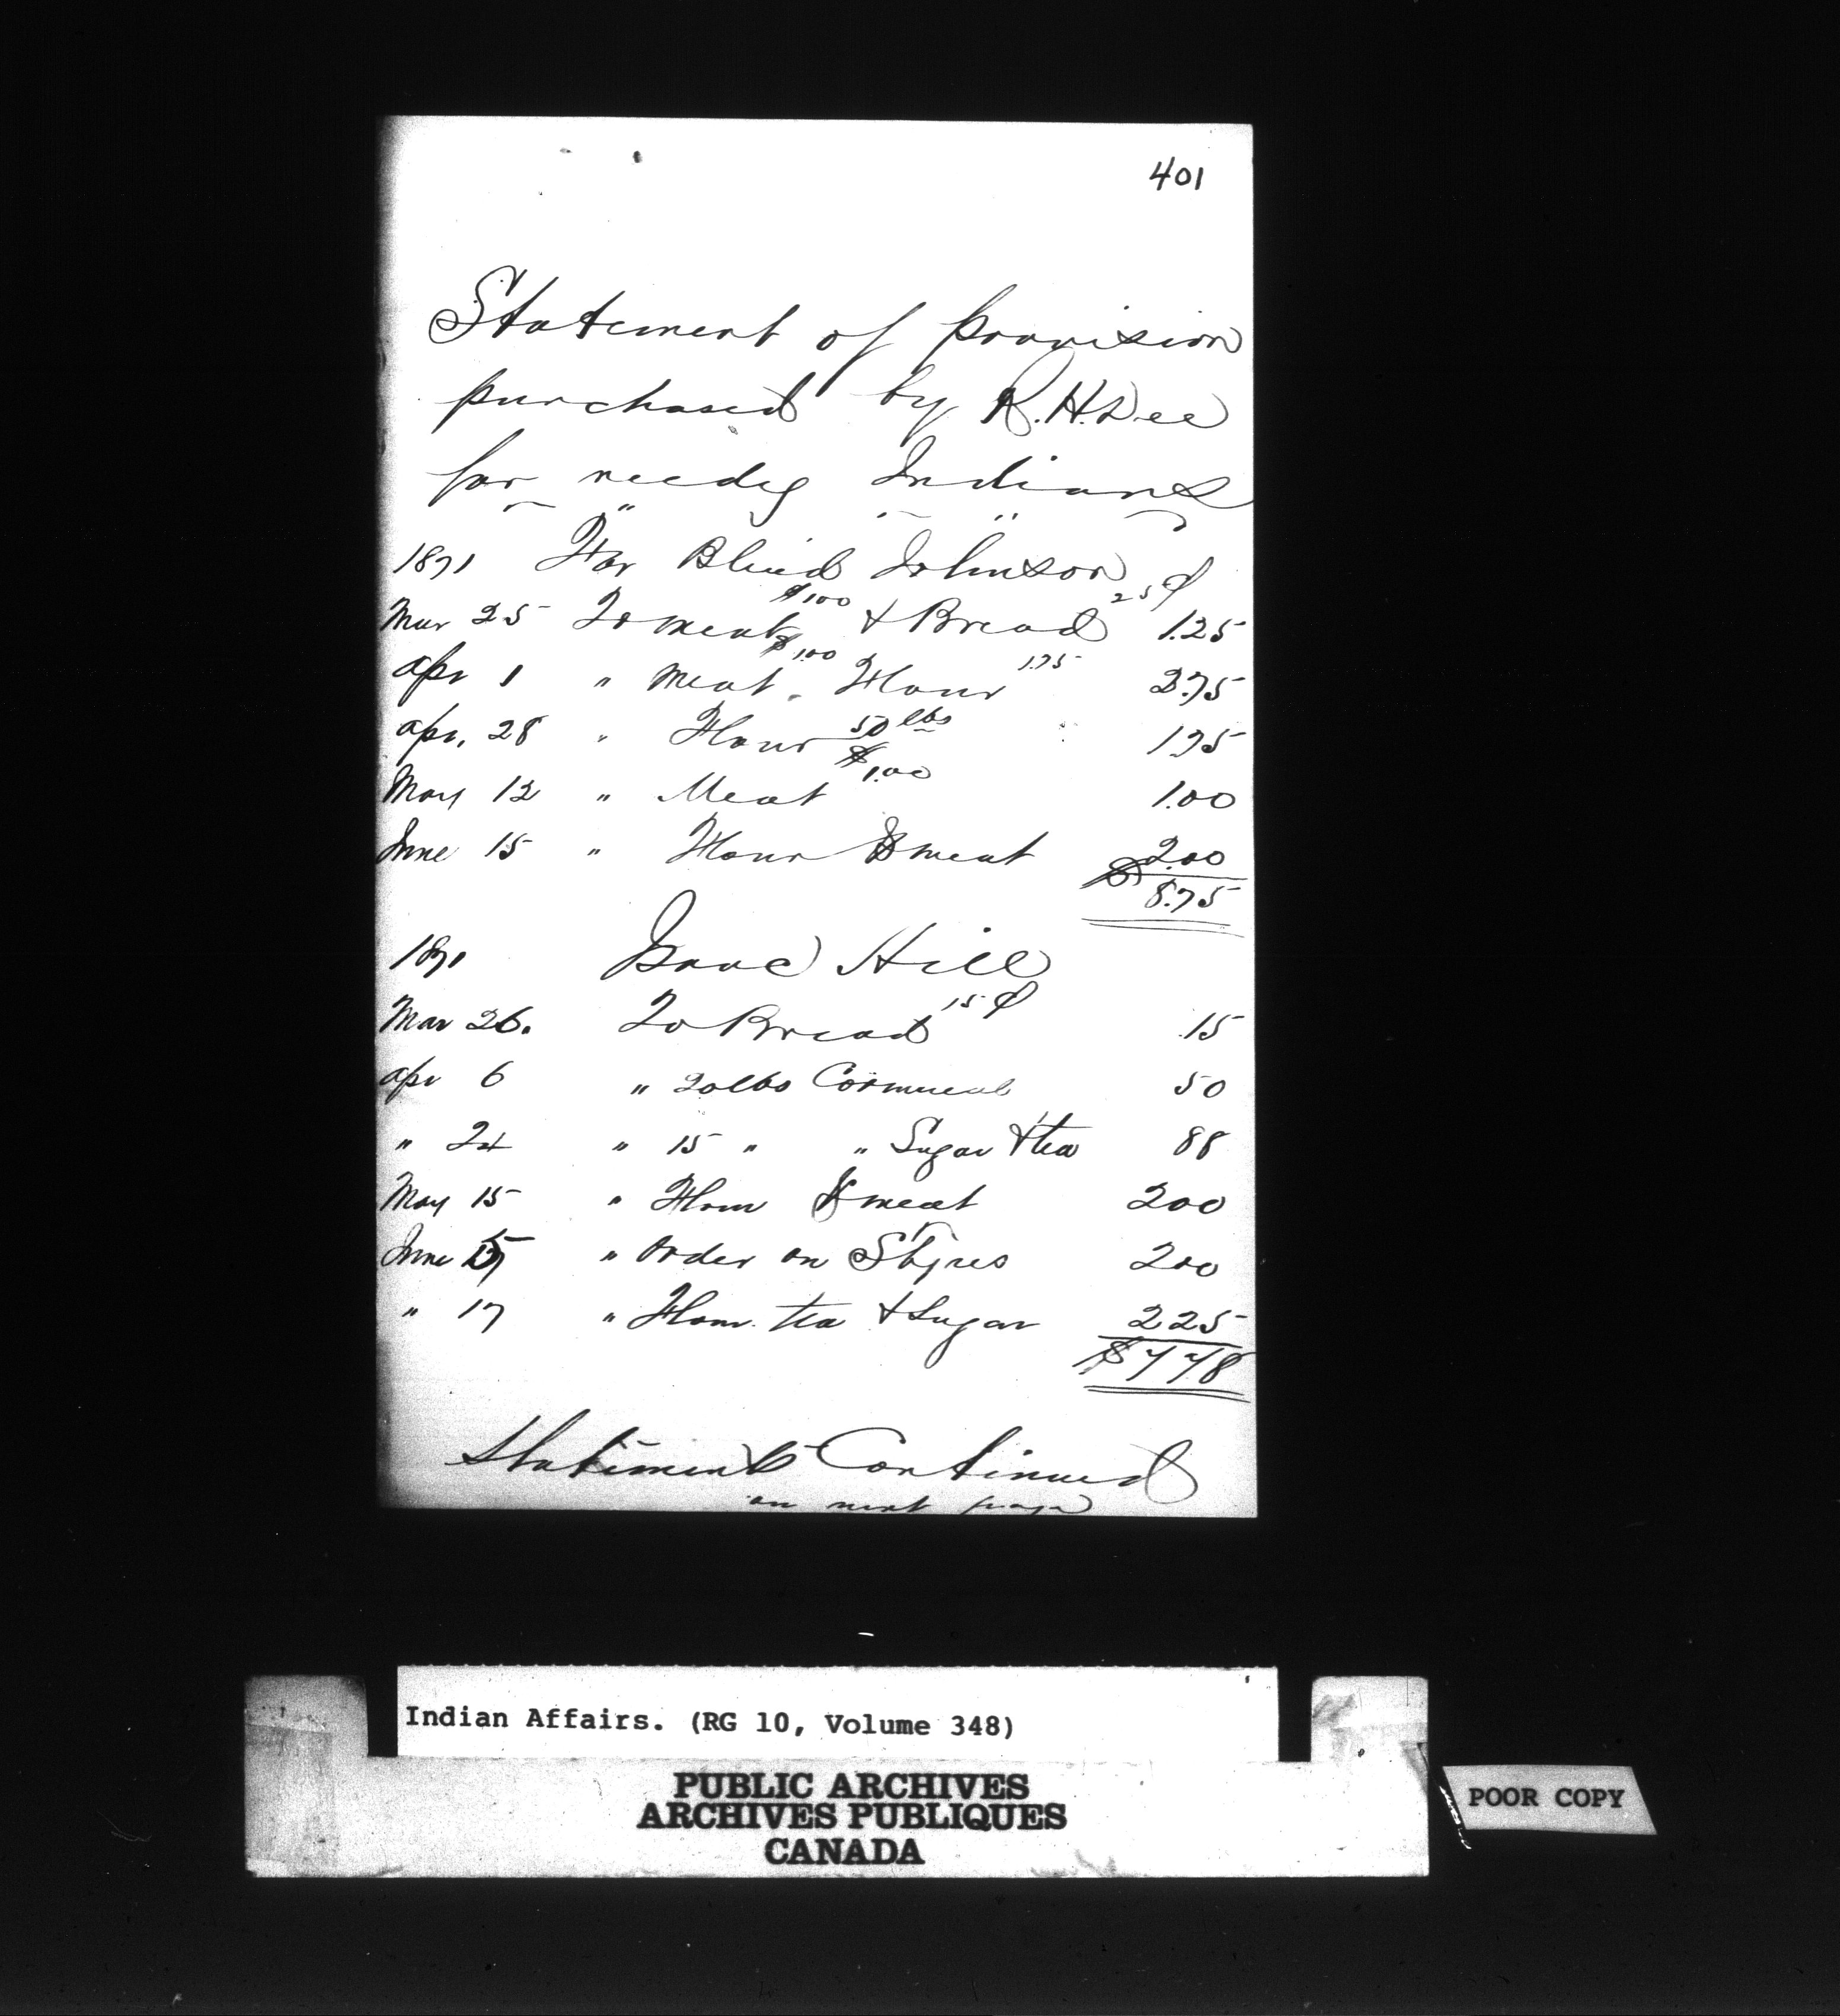 401
Statement of provision
purchased by R. H. Dee
for needy Indians
1871 For Blind Johnson
Mar 25 To meat $1.00 & Bread 25¢ 1.25
Apr 1 " meat $1.00 Flour 1.75 2.75
Apr, 28 " Flour 50 lbs 1.75
May 12 " Meat $1.00 1.00
June 15 " Flour & meat 2.00
$ 8.75
1871 Isaac Hill
Mar 26. To Bread 15¢ .15
Apr 6 " 20 lbs Cornmeal 50
" 24 " 15 " " Sugar & tea 88
May 15 " Flour & meat 200
June 15 " Order on Styres 200
" 17 " Flour tea & Sugar 225
$778
Statement Continued
on next page
Indian Affairs. (RG 10, Volume 348)
PUBLIC ARCHIVES
ARCHIVES PUBLIQUES
CANADA
POOR COPY